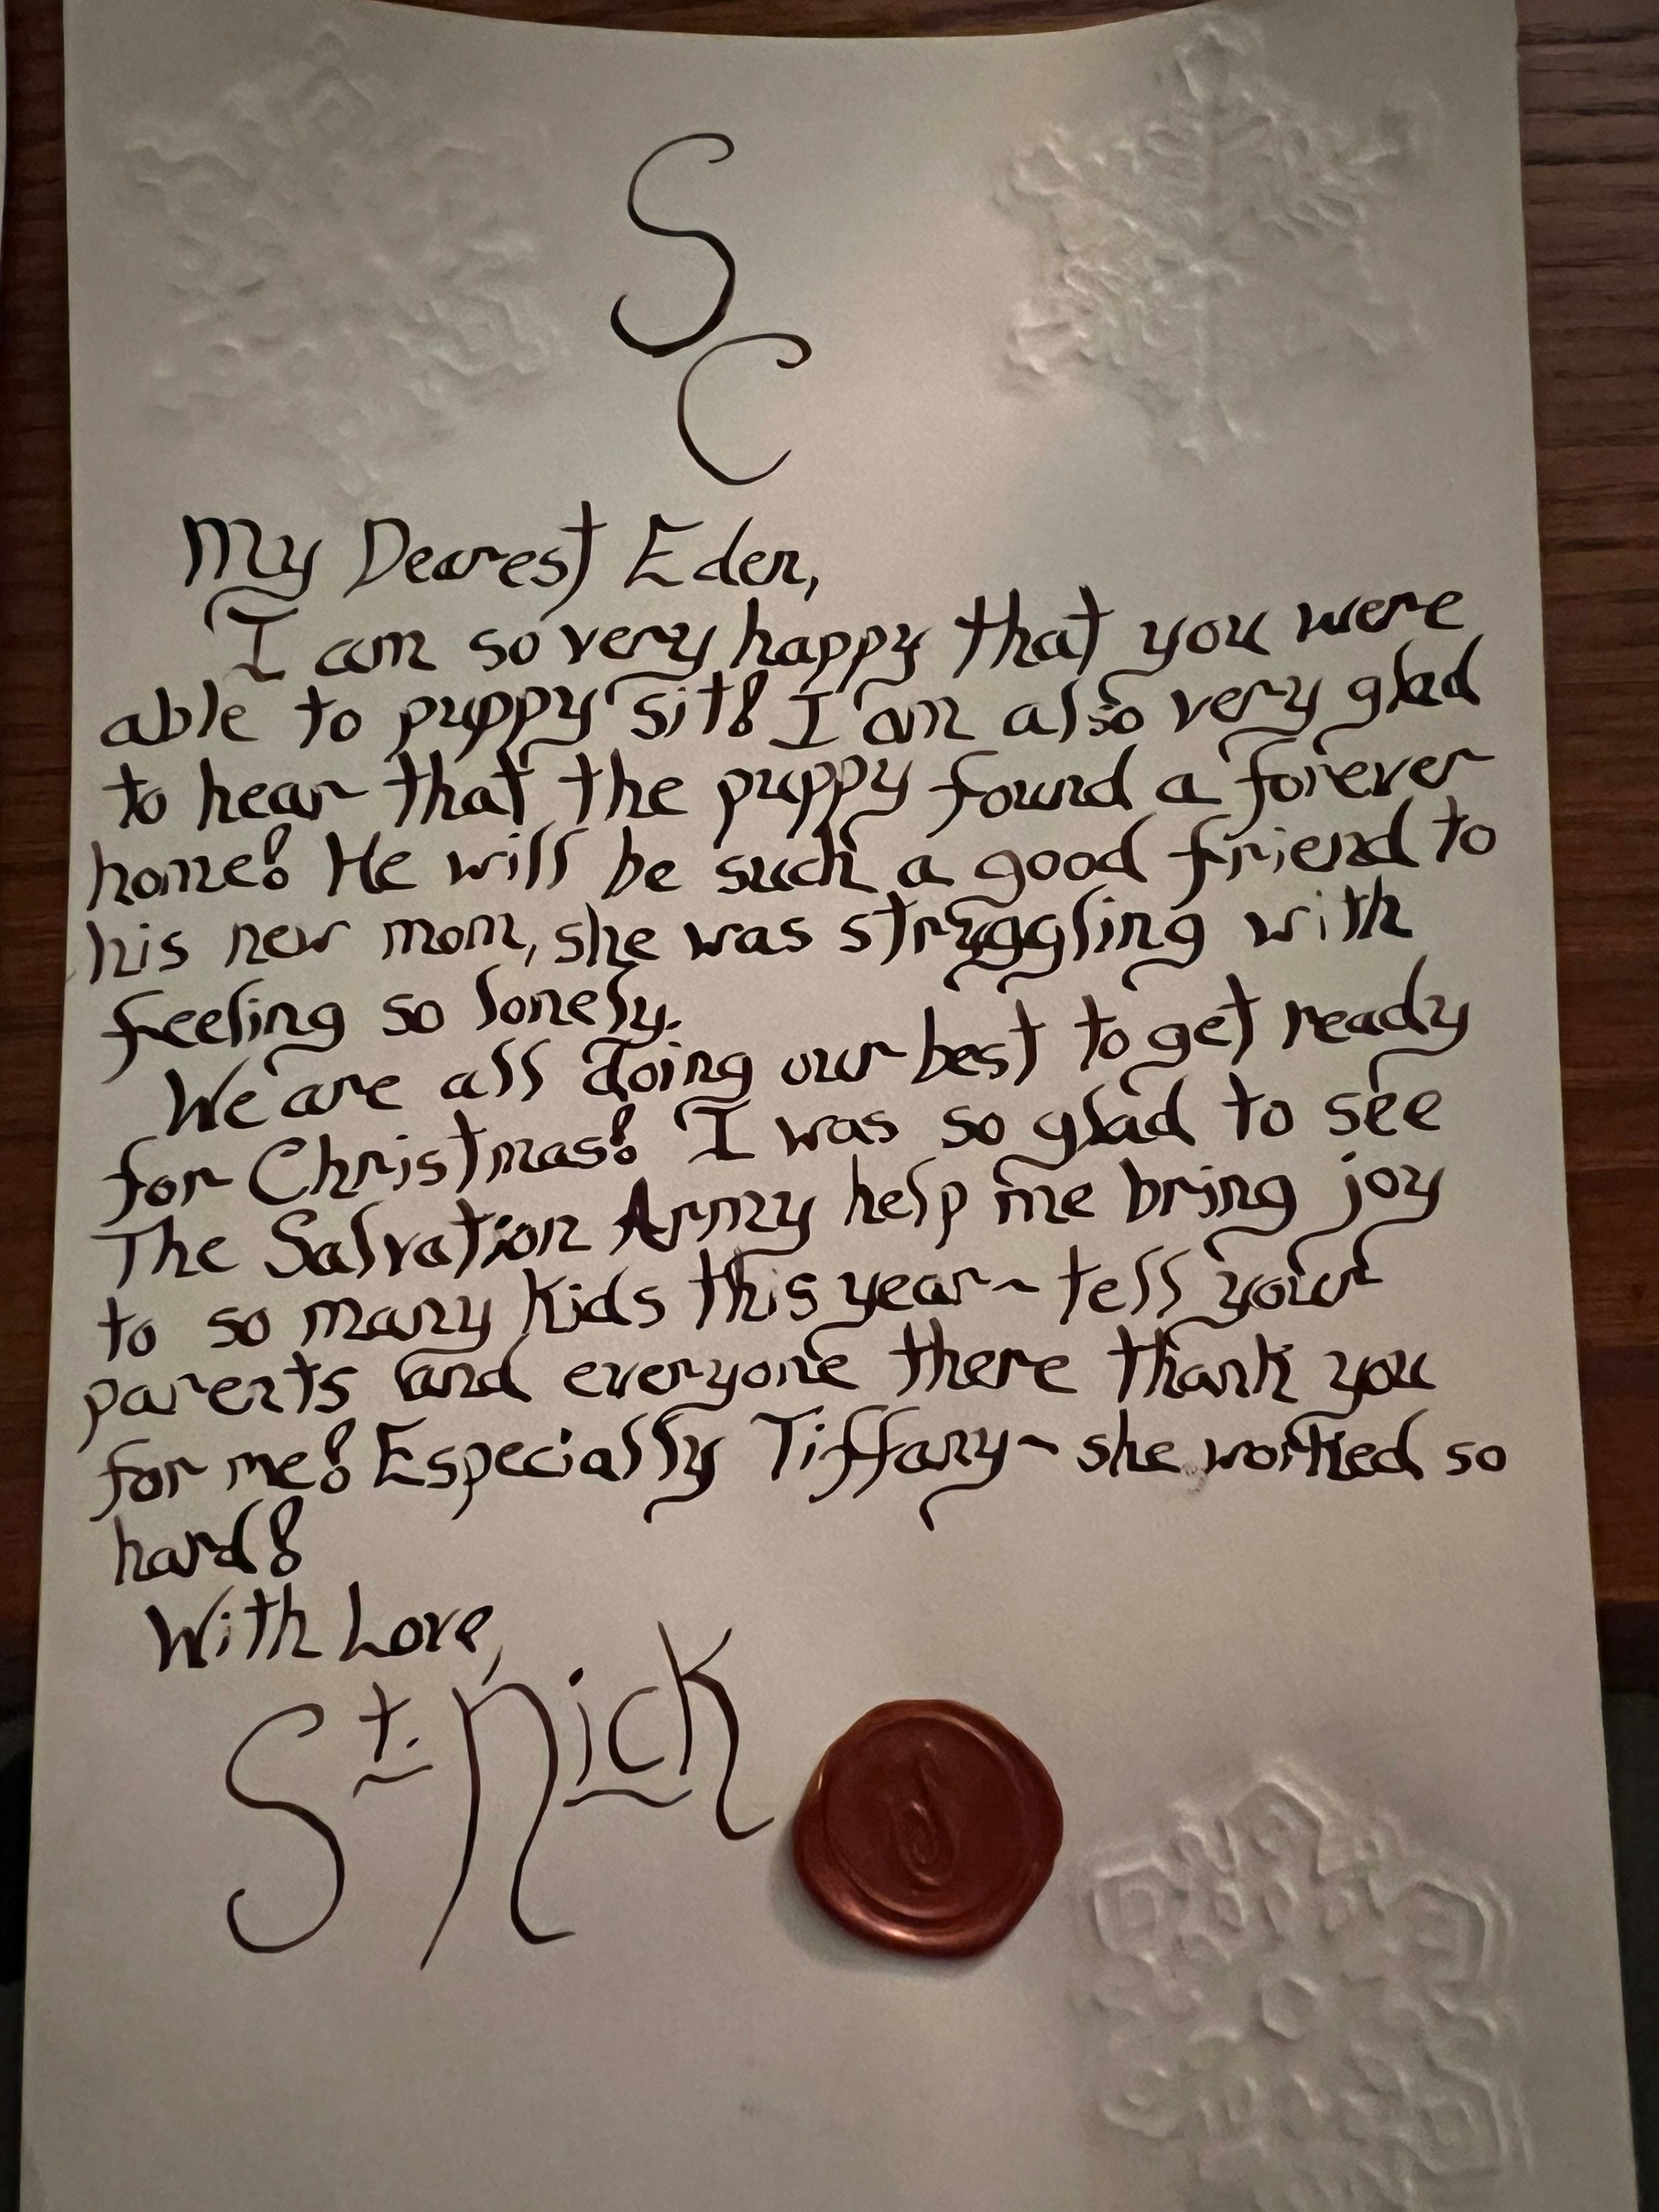 S
C
My Dearest Eden,
I am so very happy that you were
able to puppy sit! I am also very glad
to hear that the puppy found a forever
home! He will be such a good friend to
his new mom, she was struggling with
feeling so lonely.
We are all doing our best to get ready
for Christmas! I was so glad to see
The Salvation Army help me bring joy
to so many kids this year~ tell your
parents and everyone there thank you
for me! Especially Tiffany~ she worked so
hard!
With Love,
St. Nick